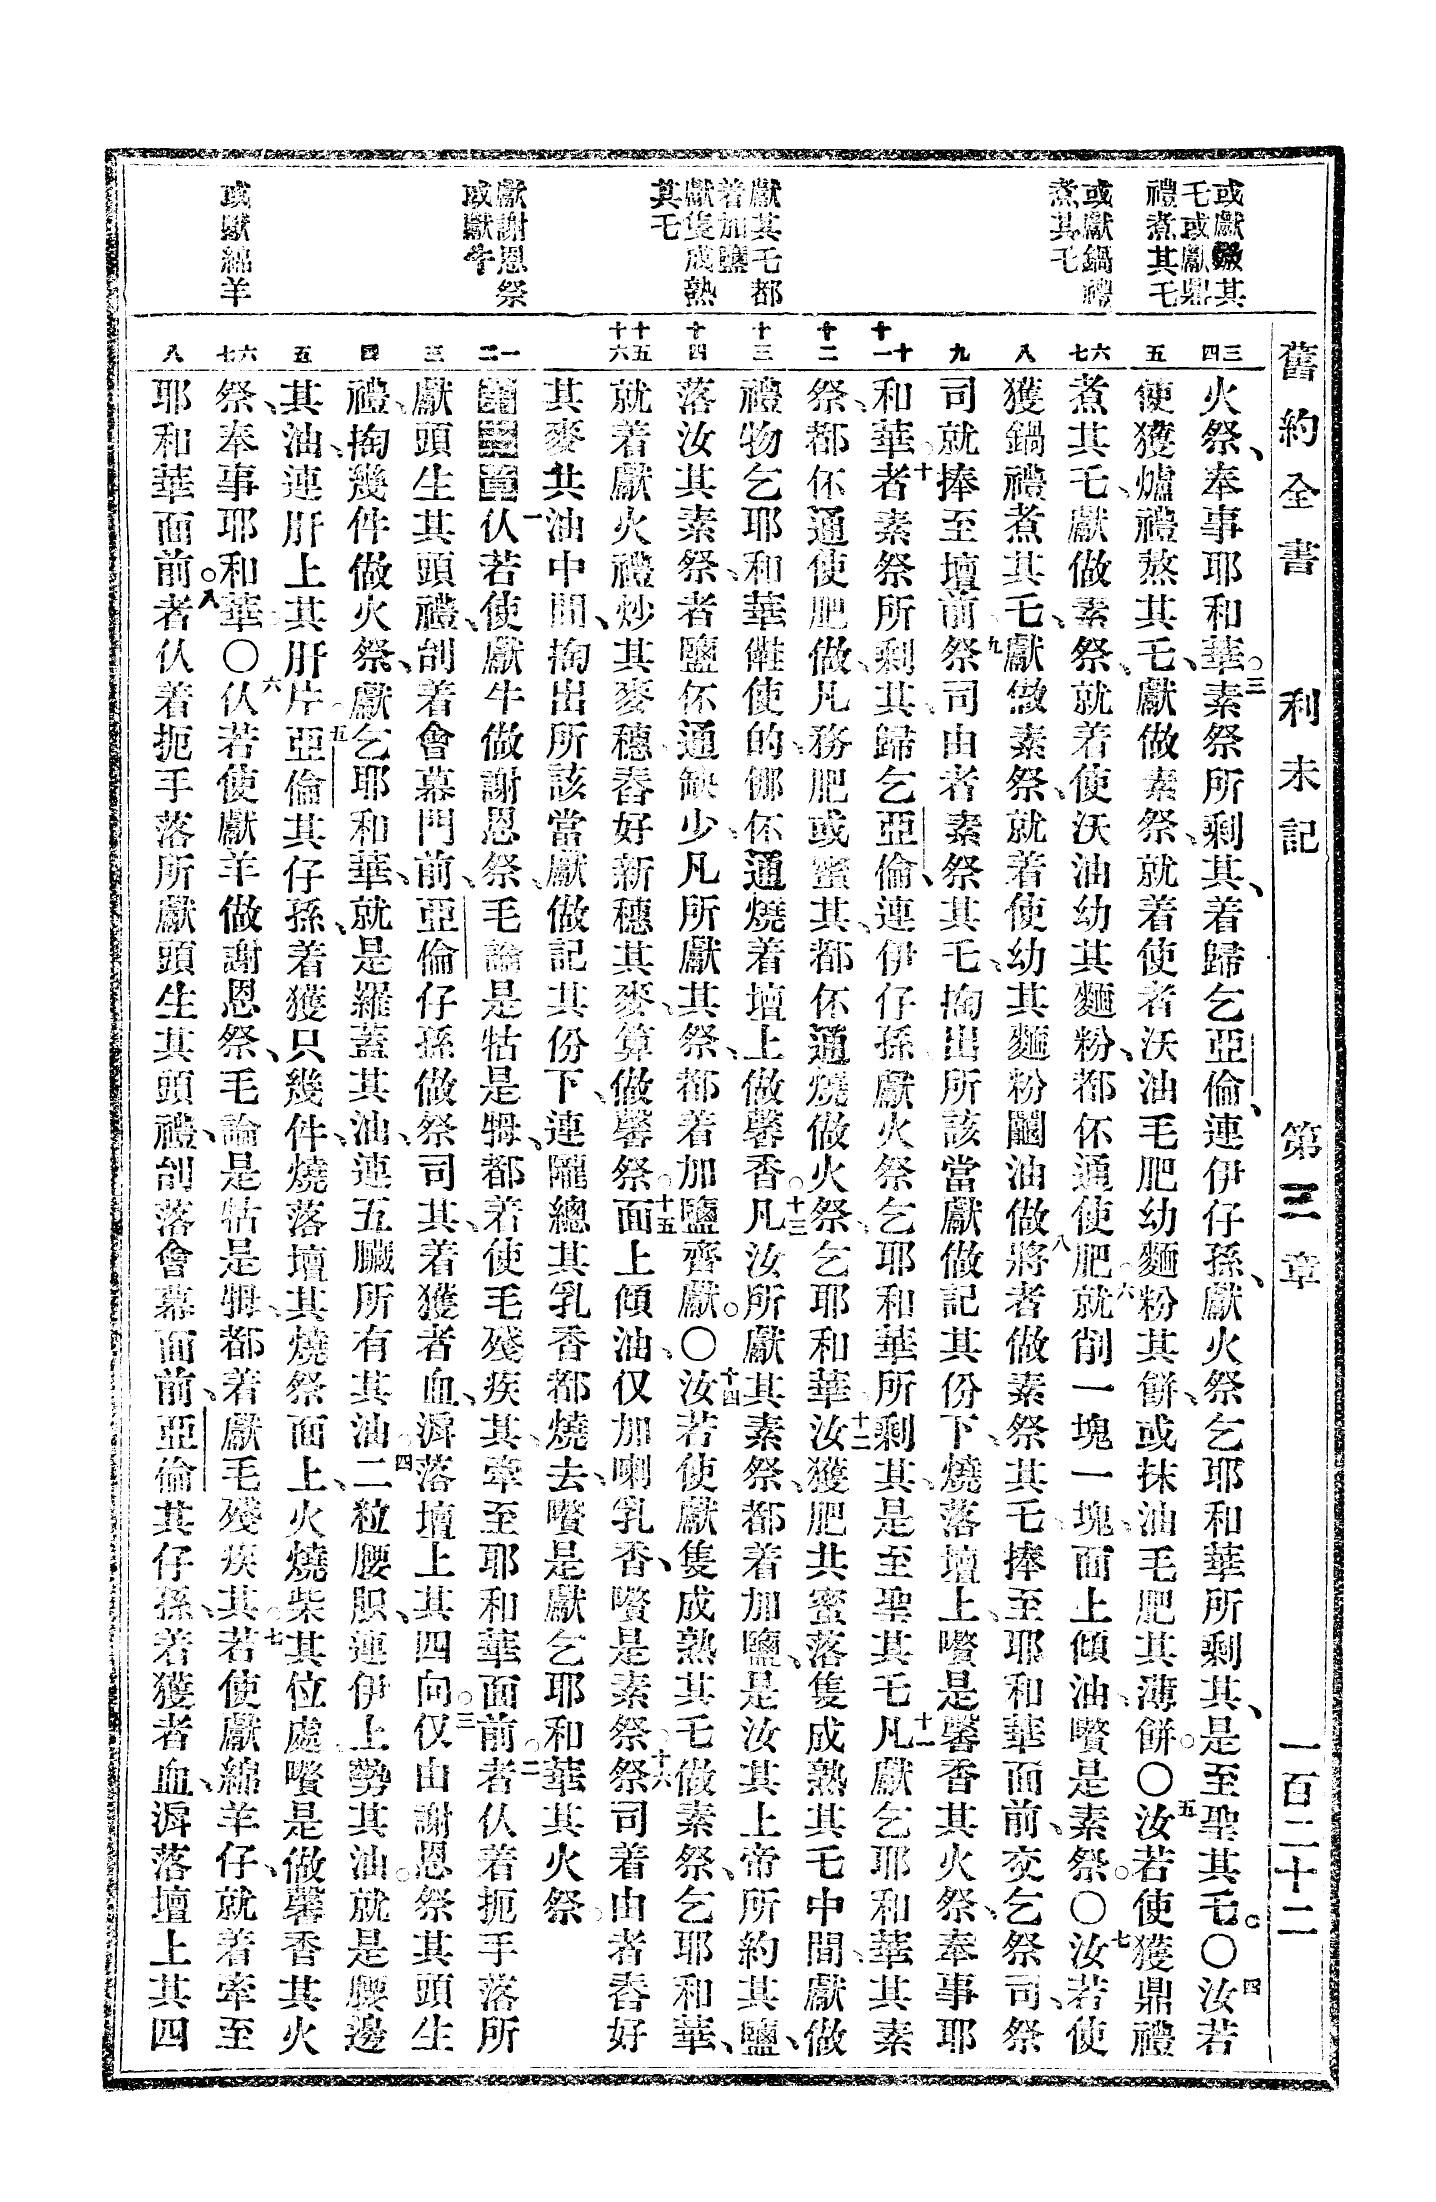 舊約全書　利未記　第三章　一百二十二
或獻䭔其
乇或獻鼎
禮煮其乇
或獻鍋禮
煮其乇
獻其乇都
着加鹽
獻隻成熟
其乇
獻謝恩祭
或獻牛
或獻綿羊
三四　五　六七　八　九　十十一　十二　十三　十四　十五十六　一二　三　四　五　六七　八
火祭、奉事耶和華。三素祭所剩其、着歸乞亞倫、連伊仔孫、獻火祭乞耶和華所剩其、是至聖其乇。〇四汝若
使獲爐禮熬其乇、獻做素祭、就着使者沃油毛肥幼麵粉其餅、或抹油毛肥其薄餅。〇五汝若使獲鼎禮
煮其乇、獻做素祭、就着使沃油幼其麵粉、都伓通使肥、六就削一塊一塊、面上傾油、嚽是素祭。〇七汝若使
獲鍋禮煮其乇、獻做素祭、就着使幼其麵粉鬮油做。八將者做素祭其乇、捧至耶和華面前、交乞祭司、祭
司就捧至壇前。九祭司由者素祭其乇、掏出所該當獻做記其份下、燒落壇上、嚽是馨香其火祭、奉事耶
和華者。十素祭所剩其、歸乞亞倫、連伊仔孫、獻火祭乞耶和華所剩其、是至聖其乇。十一凡獻乞耶和華其素
祭、都伓通使肥做、凡務肥或蜜其、都伓通燒做火祭、乞耶和華。十二汝獲肥共蜜、落隻成熟其乇中間、獻做
禮物乞耶和華㑚使的、㑚伓通燒着壇上做馨香。十三凡汝所獻其素祭、都着加鹽、是汝其上帝所約其鹽、
落汝其素祭者鹽、伓通缺少、凡所獻其祭、都着加鹽齊獻。〇十四汝若使獻隻成熟其乇做素祭、乞耶和華、
就着獻火禮炒其麥穗、舂好新穗其麥、算做馨祭。十五面上傾油、仅加喇乳香、嚽是素祭。十六祭司着由者舂好
其麥共油中間、掏出所該當獻做記其份下、連隴總其乳香都燒去、嚽是獻乞耶和華其火祭。
第三章一仈若使獻牛做謝恩祭、毛論是牯是𤘅、都着使毛殘疾其、牽至耶和華面前。二者仈着扼手落所
獻頭生其頭禮、刣着會幕門前、亞倫仔孫做祭司其、着獲者血、㴙落壇上其四向。三仅由謝恩祭其頭生
禮、掏幾件做火祭、獻乞耶和華、就是羅蓋其油、連五臟所有其油、四二粒腰脤、連伊上勢其油、就是腰邊
其油、連肝上其肝片。五亞倫其仔孫、着獲只幾件、燒落壇其燒祭面上、火燒柴其位處、嚽是做馨香其火
祭、奉事耶和華。〇六仈若使獻羊做謝恩祭、毛論是牯是𤘅、都着獻毛殘疾其。七若使獻綿羊仔、就着牽至
耶和華面前。八者仈着扼手落所獻頭生其頭禮、刣落會幕面前、亞倫其仔孫、着獲者血、㴙落壇上其四